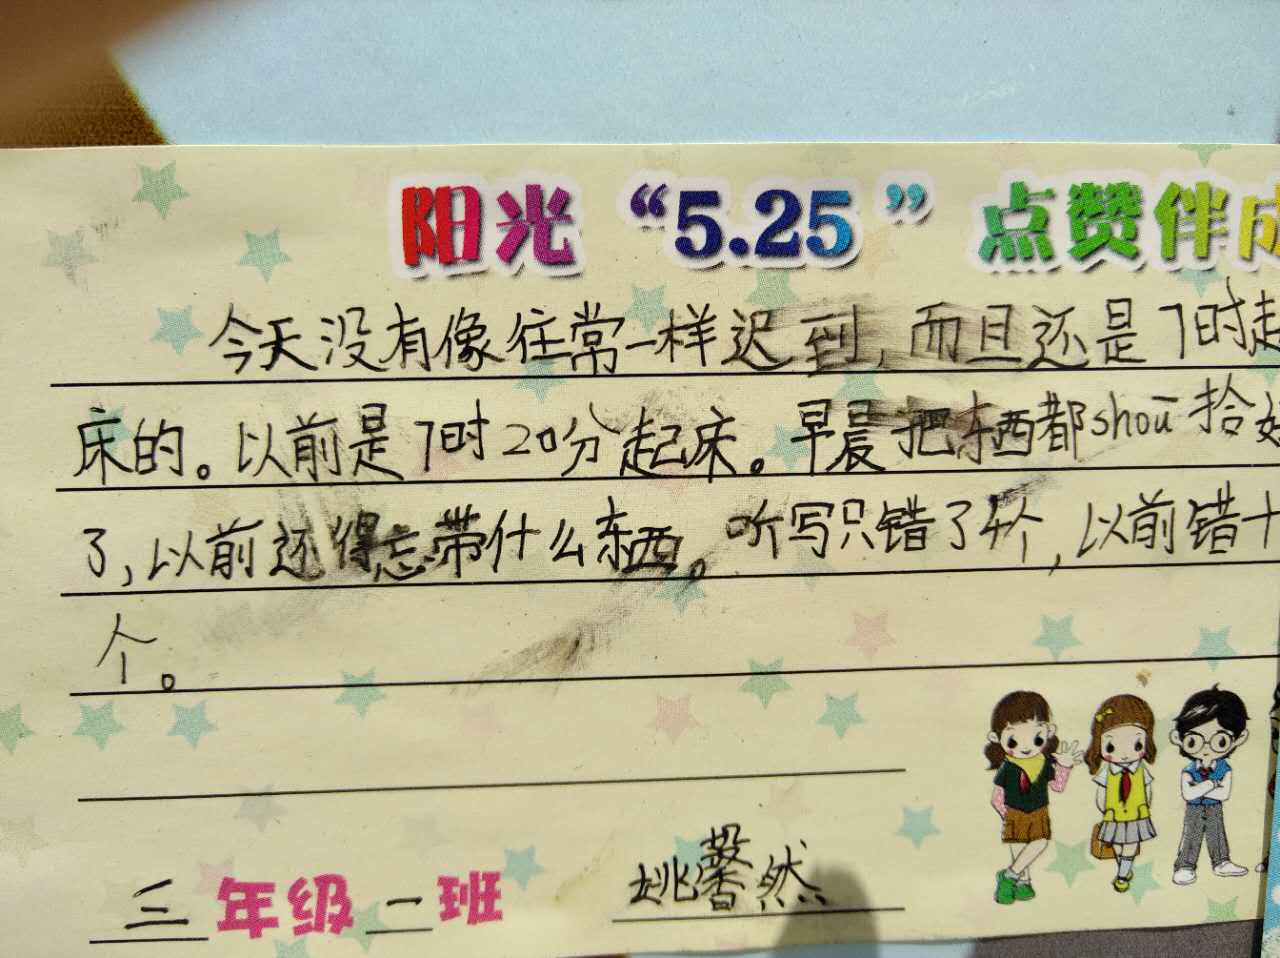 阳光“5.25”点赞伴成
今天没有像往常一样迟到,而且还是7时起
床的。以前是7时20分起床。早晨把东西都shōu拾好
了,以前还得忘带什么东西。听写只错了4个,以前错十
个。
三年级一班 姚馨然